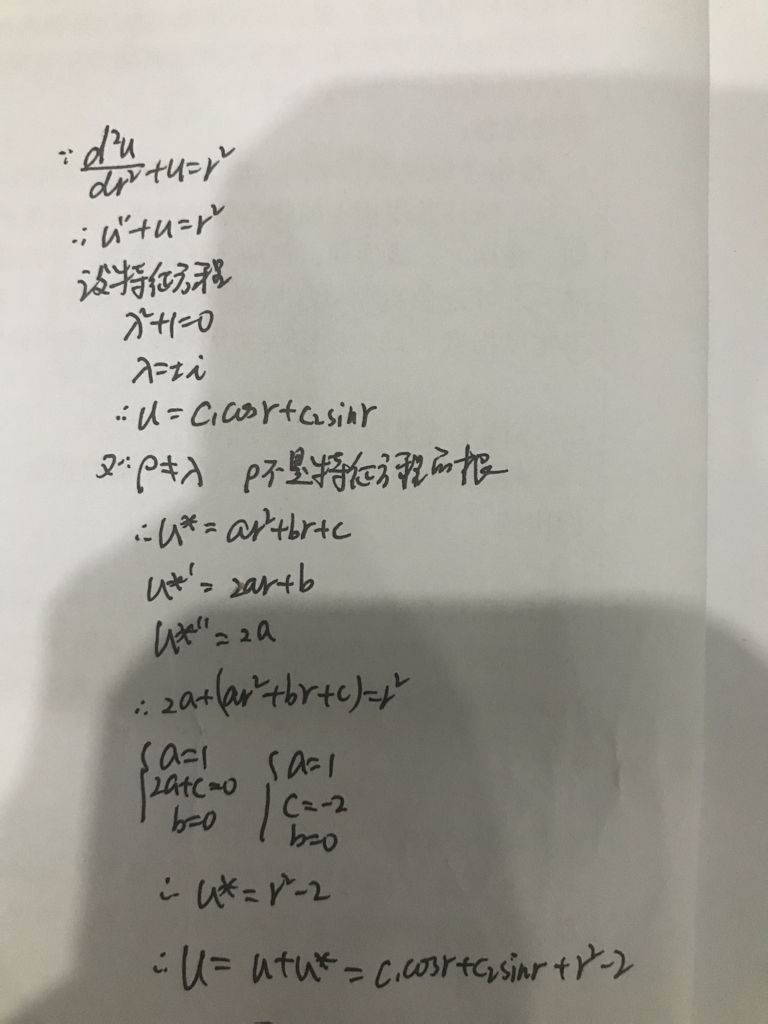 ∵ d²u/dr² + u = r²
∴ u'' + u = r²
设特征方程
λ² + 1 = 0
λ = ±i
∴ u = C₁cosr + C₂sinr
又∵ ρ ≠ λ ρ不是特征方程的根
∴ u* = ar² + br + c
u*' = 2ar + b
u*'' = 2a
∴ 2a + (ar² + br + c) = r²
{ a=1 { a=1
2a+c=0 c=-2
b=0 b=0
∴ u* = r² - 2
∴ U = u + u* = C₁cosr + C₂sinr + r² - 2